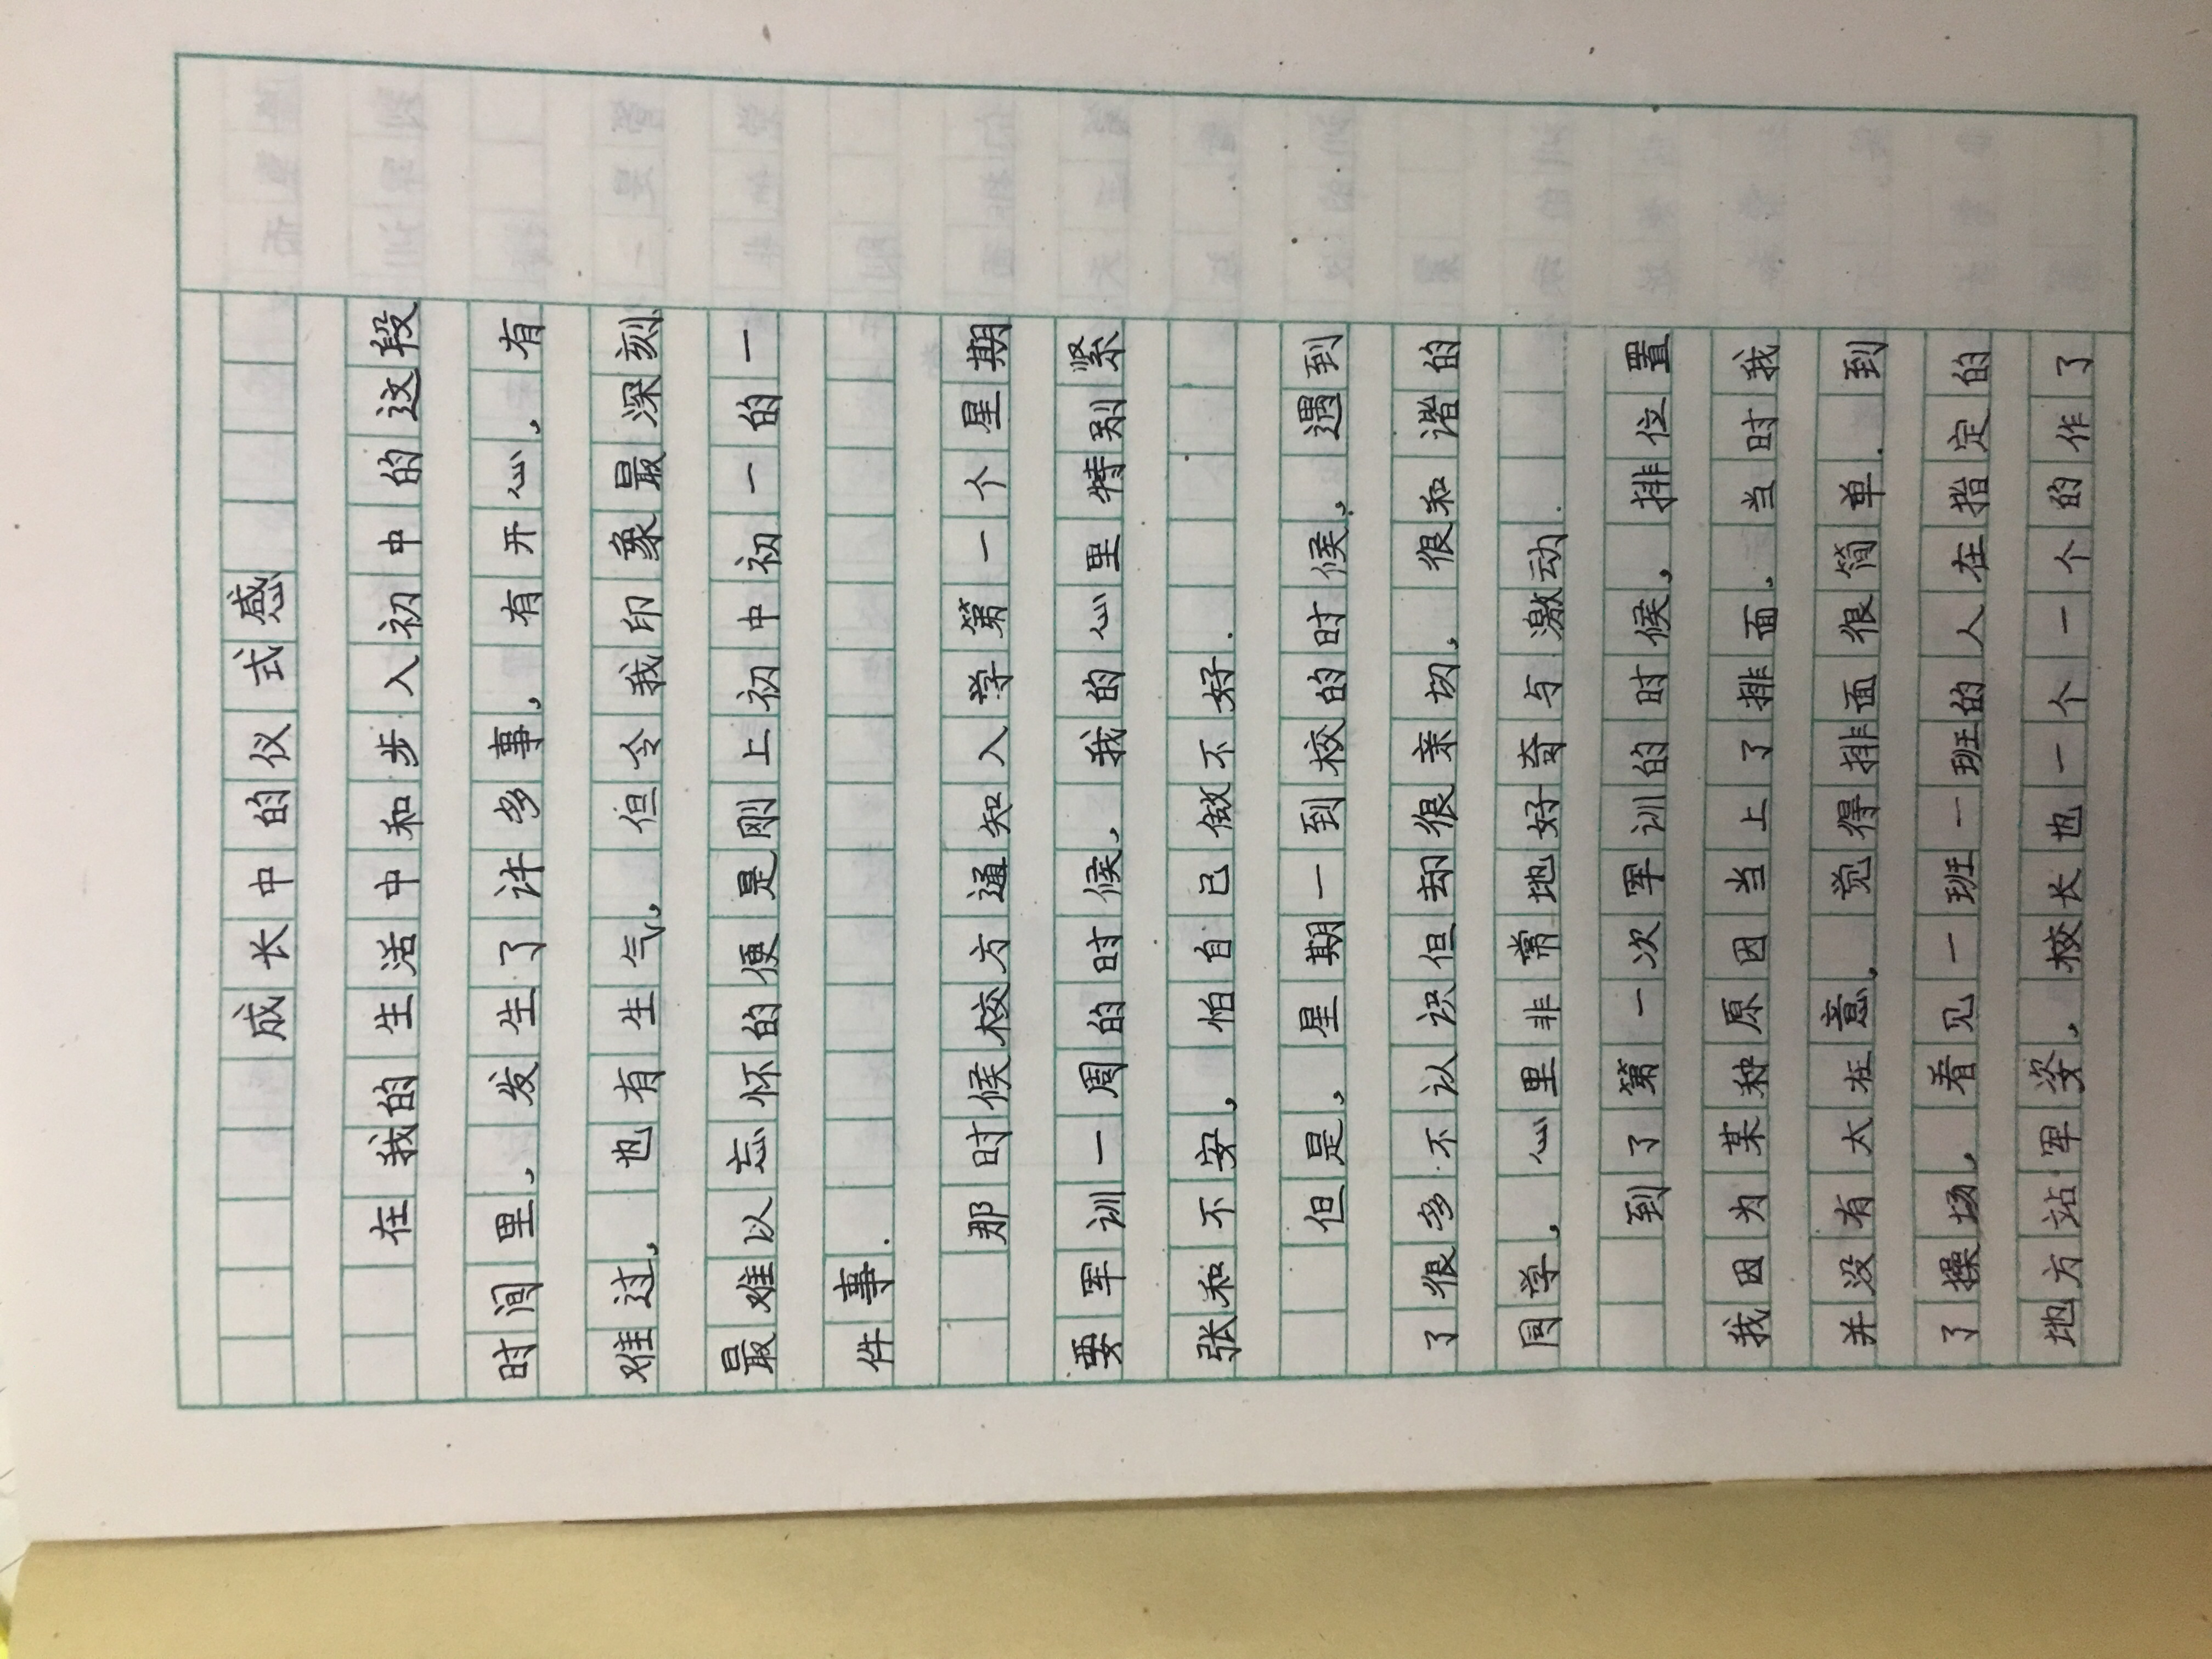 成长中的仪式感
在我的生活中和步入初中的这段
时间里,发生了许多事,有开心,有
难过,也有生气,但令我印象最深刻
最难以忘怀的便是刚上初中初一的一
件事.
那时候校方通知入学第一个星期
要军训一周的时候,我的心里特别紧
张和不安,怕自已做不好.
但是,星期一到校的时候,遇到
了很多不认识但却很亲切,很和谐的
同学,心里非常地好奇与激动.
到了第一次军训的时候,排位置
我因为某种原因当上了排面,当时我
并没有太在意,觉得排面很简单.到
了操场,看见一班一班的人在指定的
地方站军姿,校长也一个一个的作了